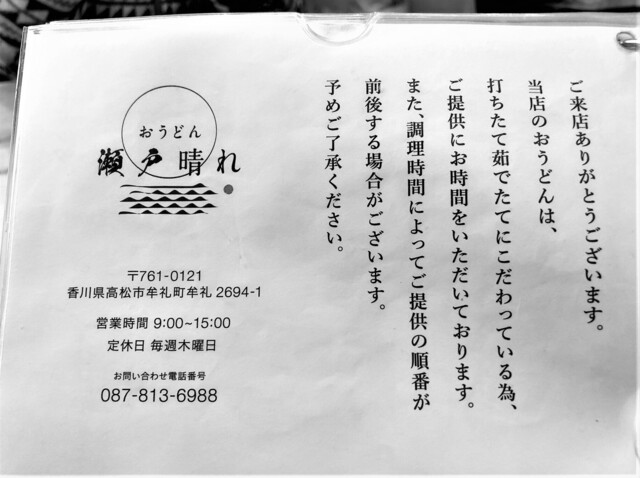 ご来店ありがとうございます。
当店のおうどんは、
打ちたて茹でたてにこだわっている為、
ご提供にお時間をいただいております。
また、調理時間によってご提供の順番が
前後する場合がございます。
予めご了承ください。
おうどん
瀬戸晴れ
〒761-0121
香川県高松市牟礼町牟礼 2694-1
営業時間 9:00~15:00
定休日 毎週木曜日
お問い合わせ電話番号
087-813-6988